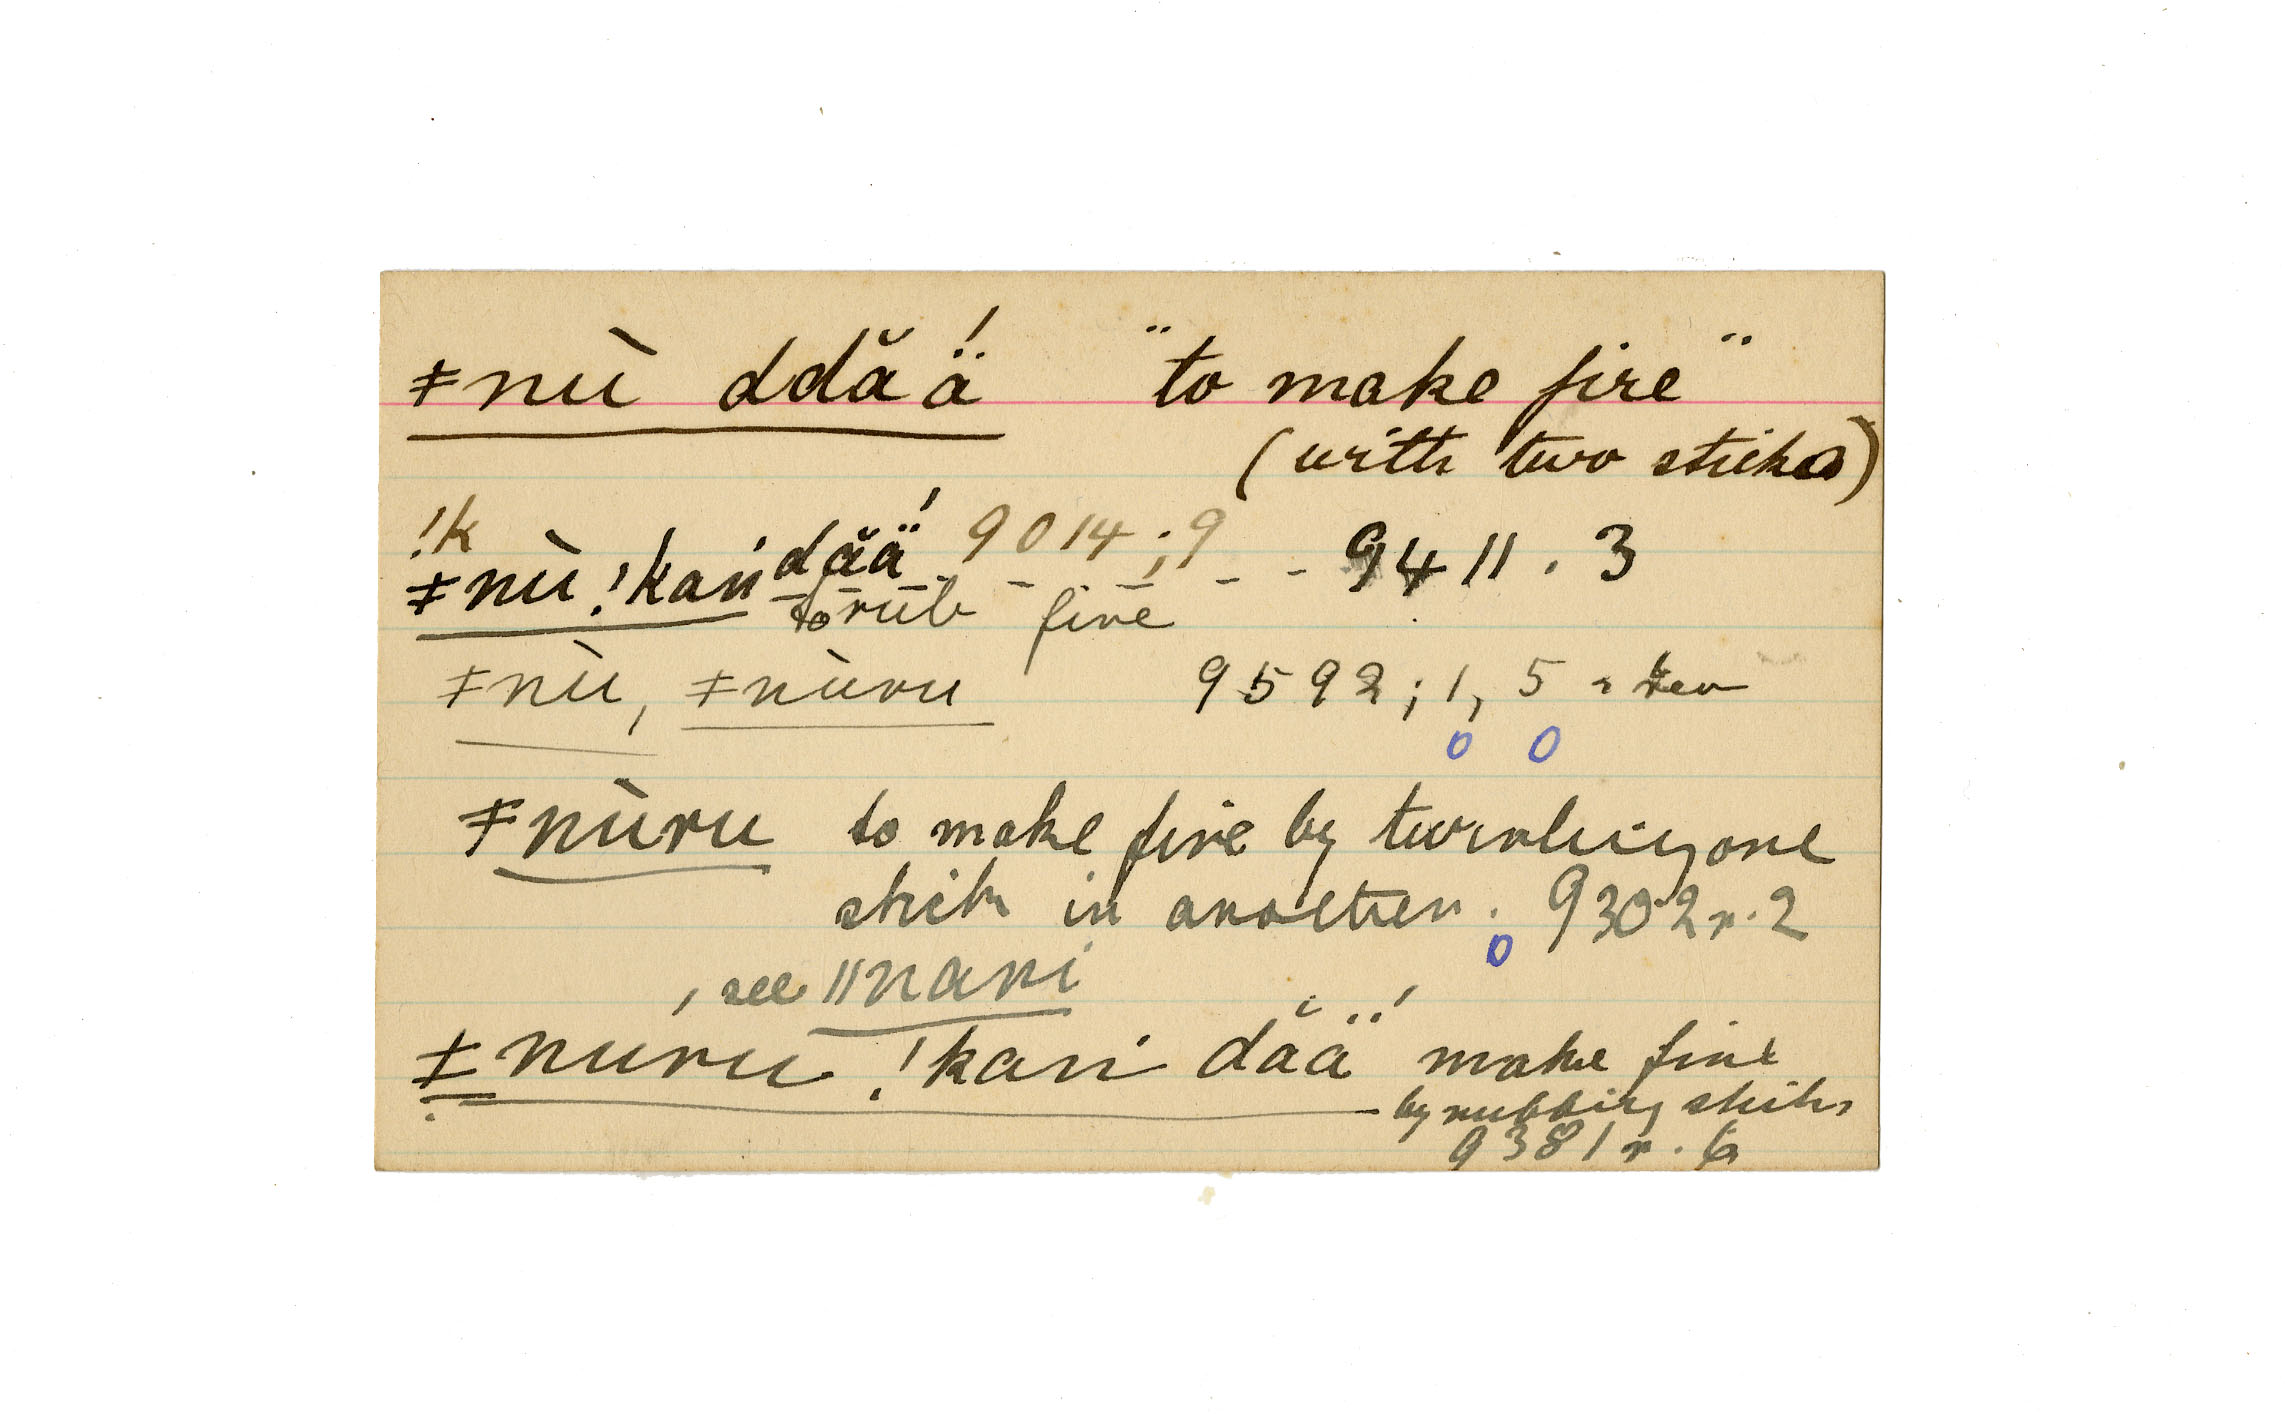 ǂnù ddăä́ "to make fire"
(with two sticks)
!k 9014;9
ǂnù !kari dăä́ - - - - - - 9411.3
to rub fire
ǂnù, ǂnùru 9592; 1, 5 rev
0 0
ǂnùru to make fire by twirling one
stick in another. 9302 r. 2
0
, see ǁnari
ǂnuru !kari dăä́ make fire
by rubbing sticks
9381 r. 6